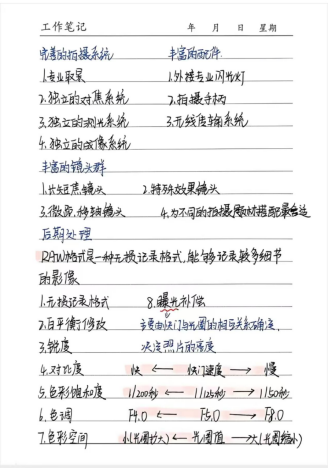 工作笔记 年 月 日 星期
完善的拍摄系统 丰富的配件
1.专业取景 1.外接专业闪光灯
2.独立的对焦系统 2.拍摄手柄
3.独立的测光系统 3.无线传输系统
4.独立的成像系统
丰富的镜头群
1.长短焦镜头 2.特殊效果镜头
3.微距,移轴镜头 4.为不同的拍摄题材搭配最合适
后期处理
RAW格式是一种无损记录格式,能够记录较多细节
的影像
1.无损记录格式 8.曝光补偿
2.白平衡修改 主要由快门与光圈的相互关系确定,
3.锐度 决定照片的亮度
4.对比度 快 ← 快门速度 → 慢
5.色彩饱和度 1/200秒 ← 1/125秒 → 1/50秒
6.色调 F4.0 ← F5.0 → F8.0
7.色彩空间 小(光圈扩大) ← 光圈值 → 大(光圈缩小)